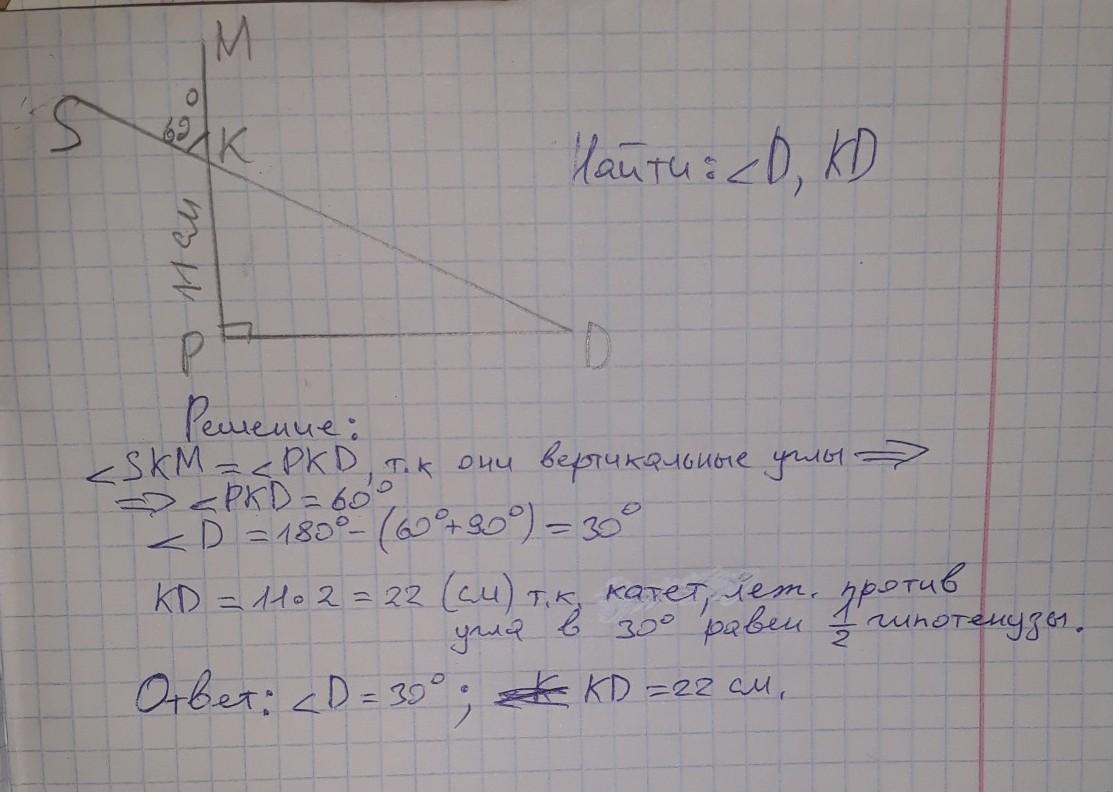 M
S
60°
K
Найти: ∠D, KD
11 см
P
D
Решение:
∠SKM = ∠PKD, т.к они вертикальные углы ⟹
⟹ ∠PKD = 60°
∠D = 180° - (60° + 90°) = 30°
KD = 11 • 2 = 22 (см) т.к. катет, леж. против
угла в 30° равен 1/2 гипотенузы.
Ответ: ∠D = 30°; KD = 22 см.